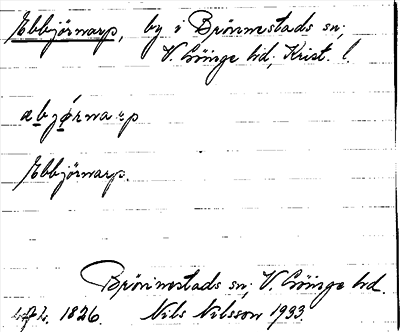 Ebbjörnarp, by i Brönnestads sn,
V. Göinge hd, Krist. l.
abjørnarp
Ebbjörnarp.
Brönnestads sn, V. Göinge hd.
1826. Nils Nilsson 1933.